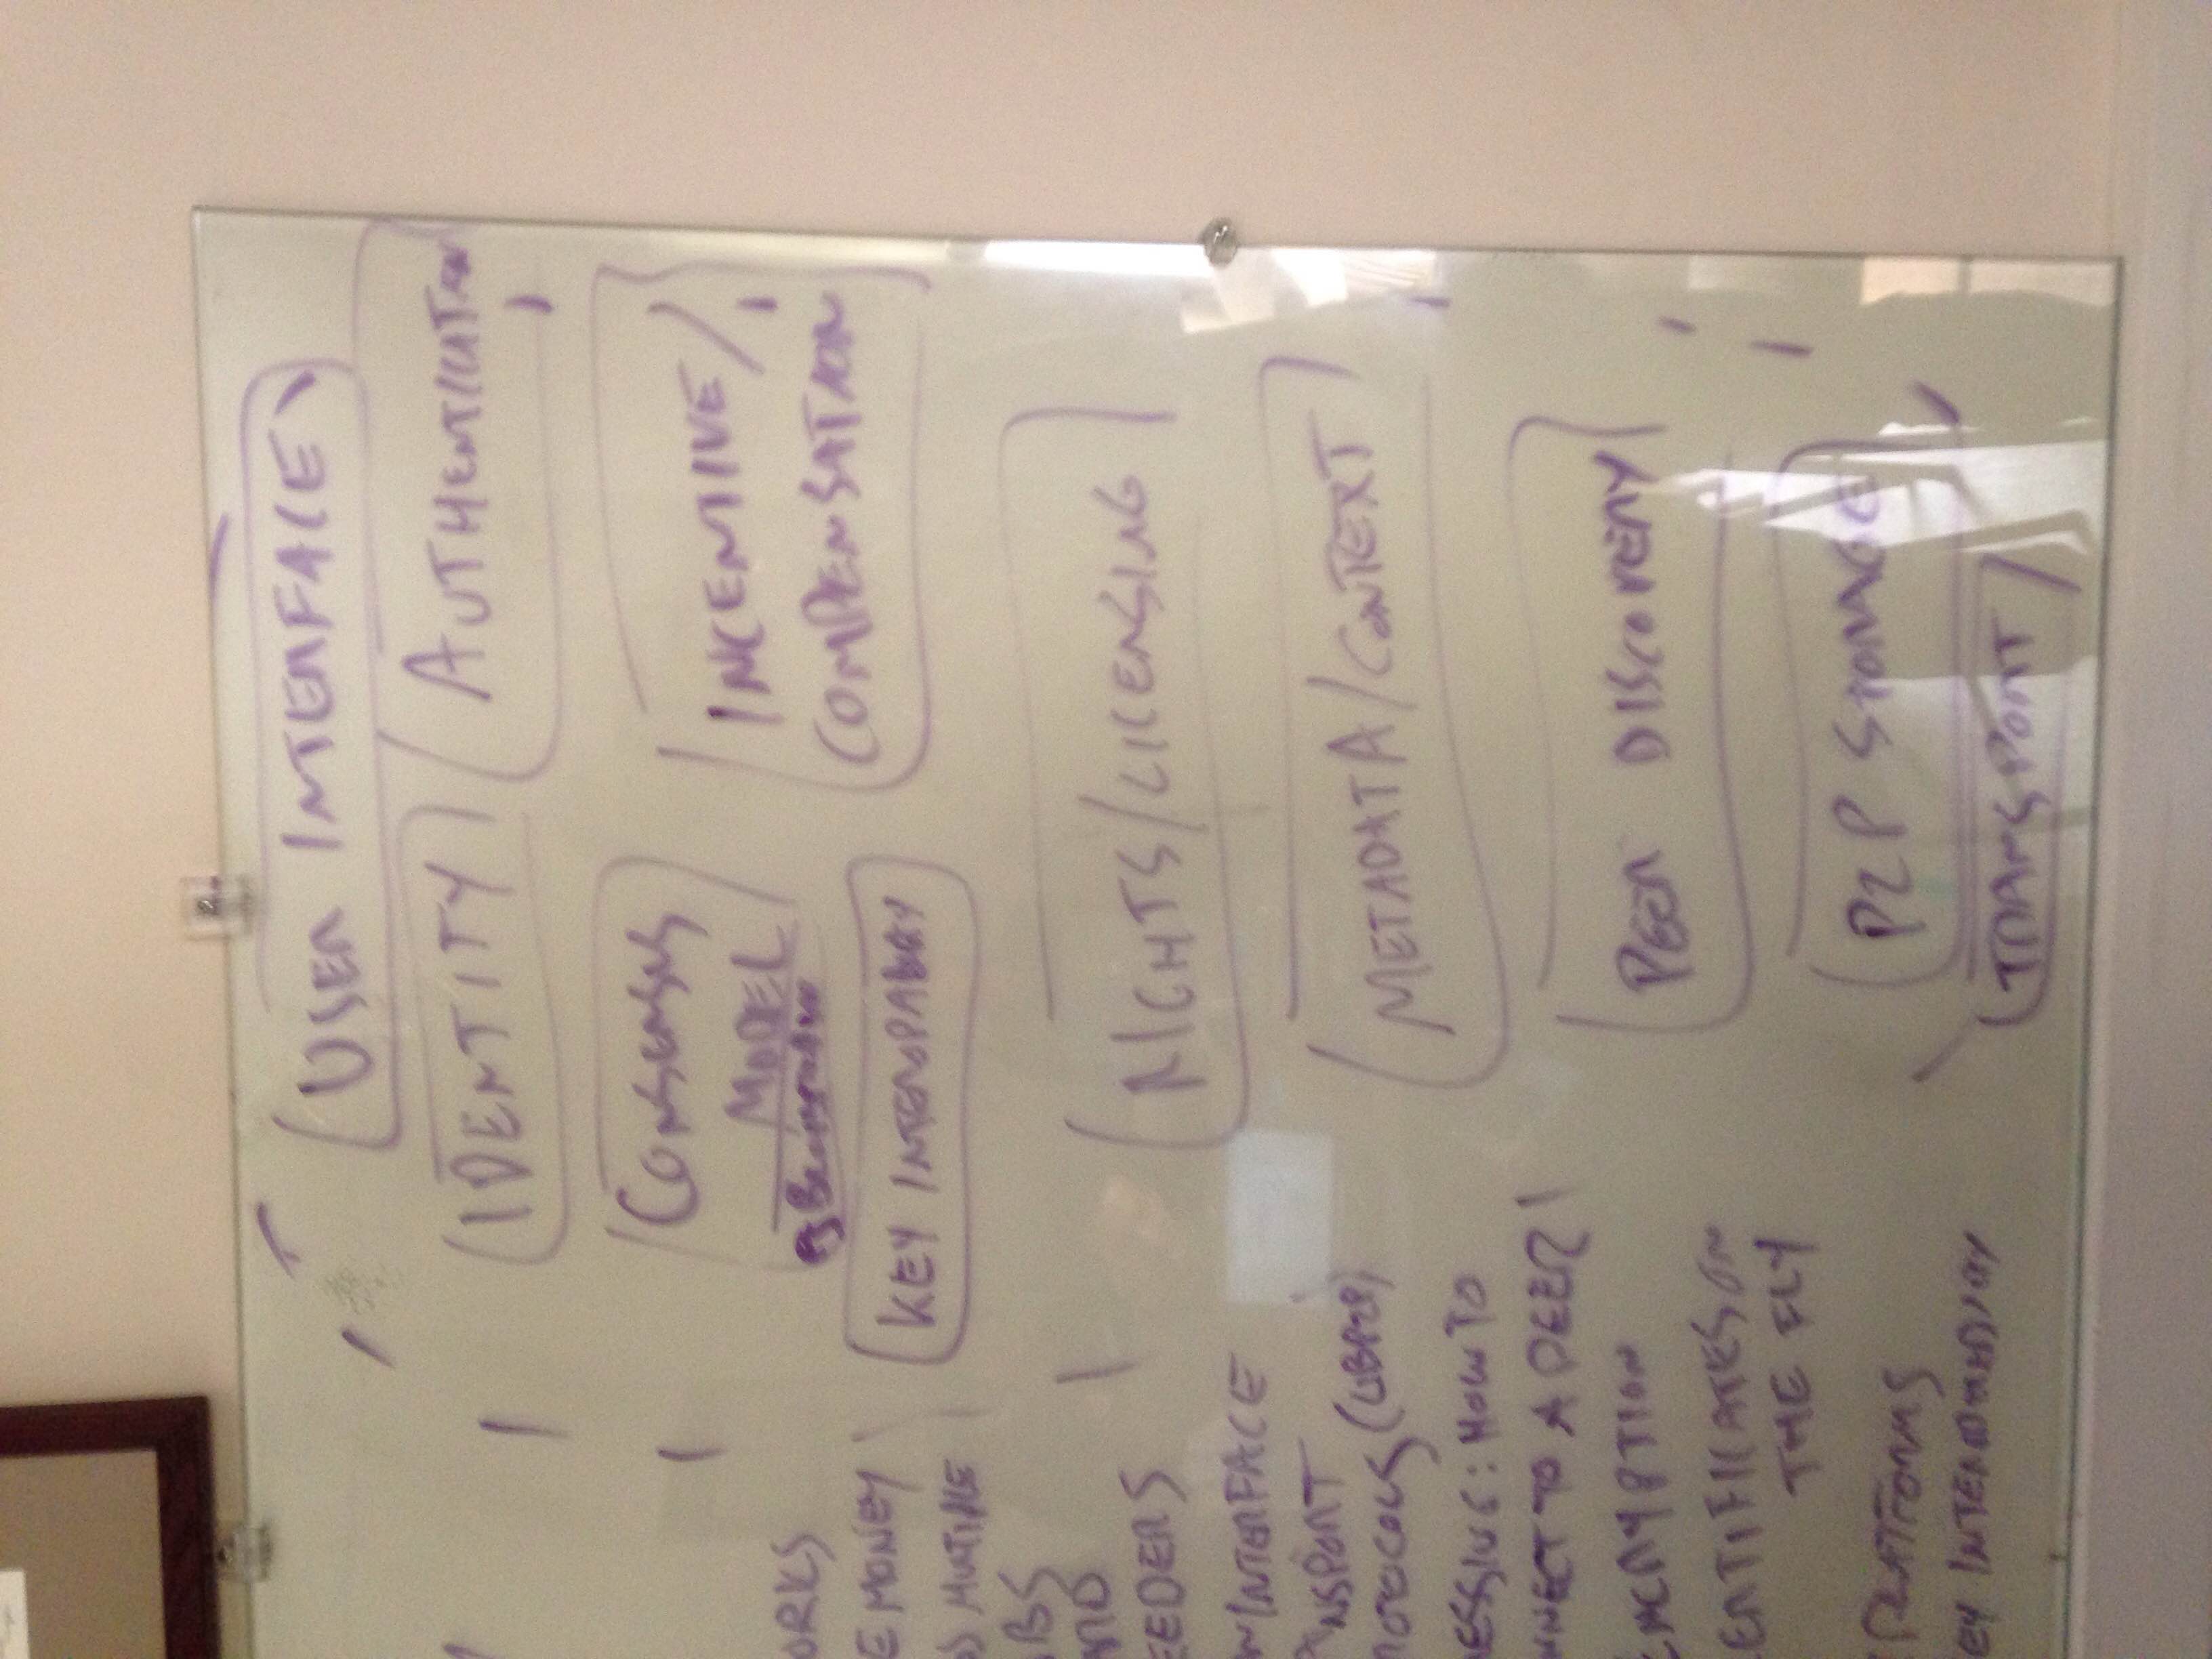 ORKS
E MONEY
MULTIPLE
BS
AND
EEDERS
INTERFACE
ANSPORT
OTOCOLS (LIBP2P)
ESSING: HOW TO
NNECT TO A PEER
ENCRYPTION
ERTIFICATES ON
THE FLY
PLATFORMS
EY
USER INTERFACE
IDENTITY
AUTHENTICATION
CONSENSUS
MODEL
eg
KEY
INCENTIVE/
COMPENSATION
RIGHTS/LICENSING
METADATA/CONTEXT
PEER DISCOVERY
P2P STORAGE
TRANSPORT